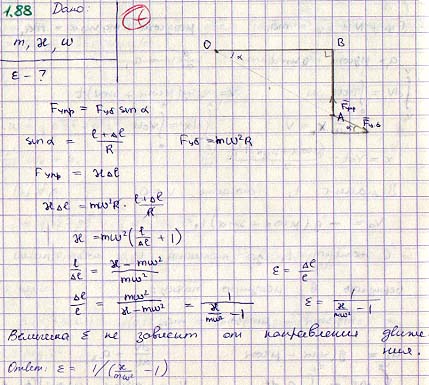 1.88 Дано:
m, ϰ, ω
ε - ?
O α B
A F̄упр
x α F̄цб
Fупр = Fцб sin α
sin α = (l + Δl)/R Fцб = mω²R
Fупр = ϰΔl
ϰΔl = mω²R · (l + Δl)/R
ϰ = mω²(l/Δl + 1)
l/Δl = (ϰ - mω²)/mω² ε = Δl/l
Δl/l = mω²/(ϰ - mω²) = 1/(ϰ/mω² - 1) ε = 1/(ϰ/mω² - 1)
Величина ε не зависит от направления движе
ния.
Ответ: ε = 1/(ϰ/mω² - 1)